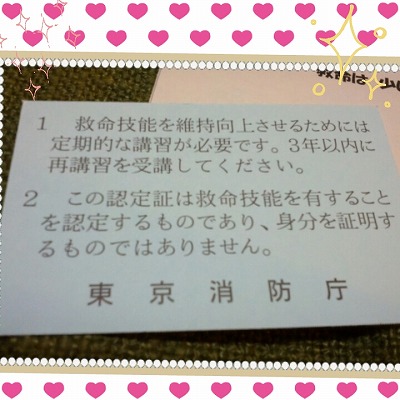 1 救命技能を維持向上させるためには
定期的な講習が必要です。3年以内に
再講習を受講してください。
2 この認定証は救命技能を有すること
を認定するものであり、身分を証明す
るものではありません。
東京消防庁